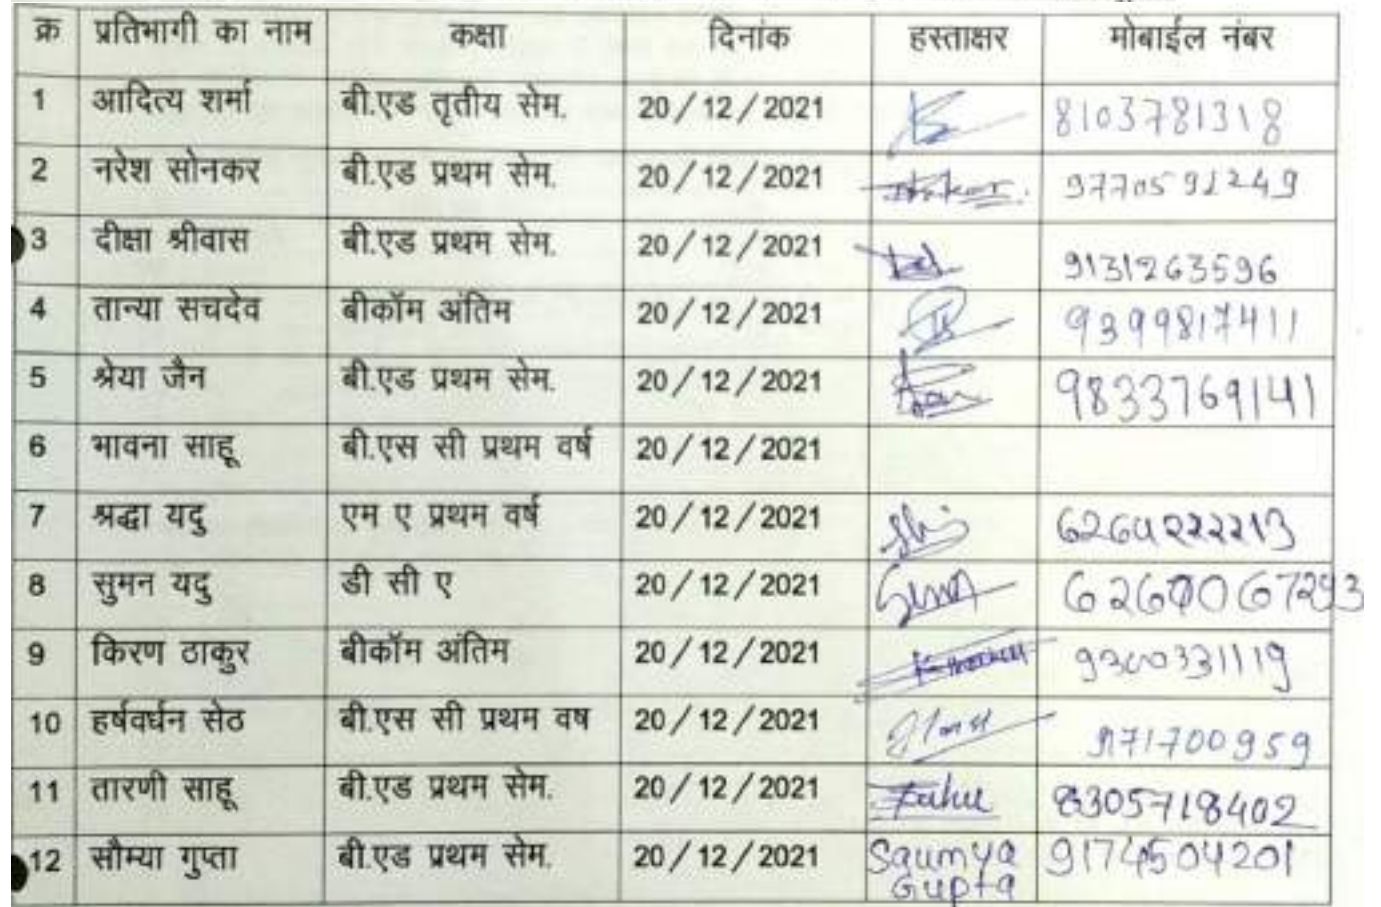 क्र प्रतिभागी का नाम कक्षा दिनांक हस्ताक्षर मोबाईल नंबर
1 आदित्य शर्मा बी.एड तृतीय सेम. 20/12/2021 8103781318
2 नरेश सोनकर बी.एड प्रथम सेम. 20/12/2021 9770592249
3 दीक्षा श्रीवास बी.एड प्रथम सेम. 20/12/2021 9131263596
4 तान्या सचदेव बीकॉम अंतिम 20/12/2021 9399817411
5 श्रेया जैन बी.एड प्रथम सेम. 20/12/2021 9833769141
6 भावना साहू बी.एस सी प्रथम वर्ष 20/12/2021
7 श्रद्धा यदु एम ए प्रथम वर्ष 20/12/2021 6264222213
8 सुमन यदु डी सी ए 20/12/2021
9 किरण ठाकुर बीकॉम अंतिम 20/12/2021 9300331119
10 हर्षवर्धन सेठ बी.एस सी प्रथम वष 20/12/2021
11 तारणी साहू बी.एड प्रथम सेम. 20/12/2021 Sahu 8305718402
12 सौम्या गुप्ता बी.एड प्रथम सेम. 20/12/2021 Saumya 9174504201
Gupta